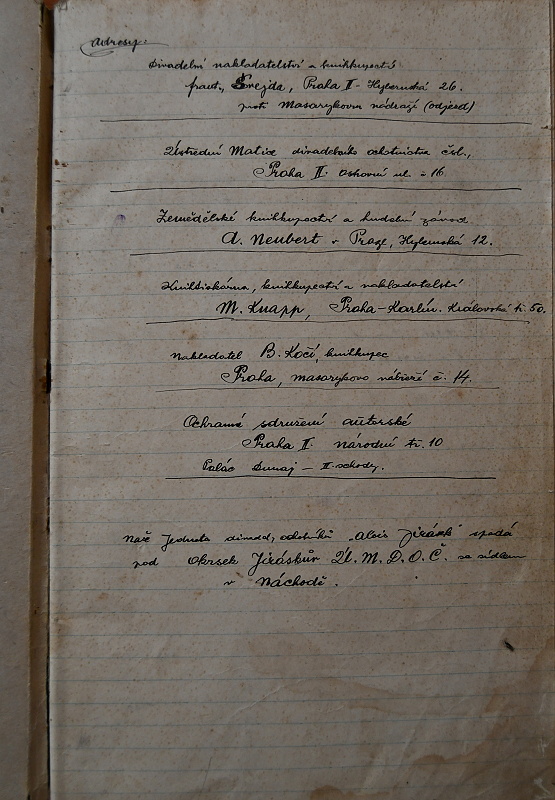 Adresy:
Divadelní nakladatelství a knihkupectví
frant. Švejda, Praha II - Hybernská 26.
proti Masarykovu nádraží (odjezd)
Ústřední Matice divadelního ochotnictva čsl.,
Praha II. ul. č. 16
Zemědělské knihkupectví a hudební závod
A. Neubert v Praze, Hybernská 12.
Knihtiskárna, knihkupectví a nakladatelství
M. Knapp, Praha-Karlín. Královská tř. 60.
Nakladatel B. Kočí, knihkupec
Praha, Masarykovo nábřeží č. 14.
Ochranné sdružení autorské
Praha II. národní tř. 10
Palác Dunaj - II. schody.
Naše Jednota divad. ochotníků "Alois Jirásek" spadá
pod Okrsek Jiráskův Ú. M. D. O. Č. se sídlem
v Náchodě.